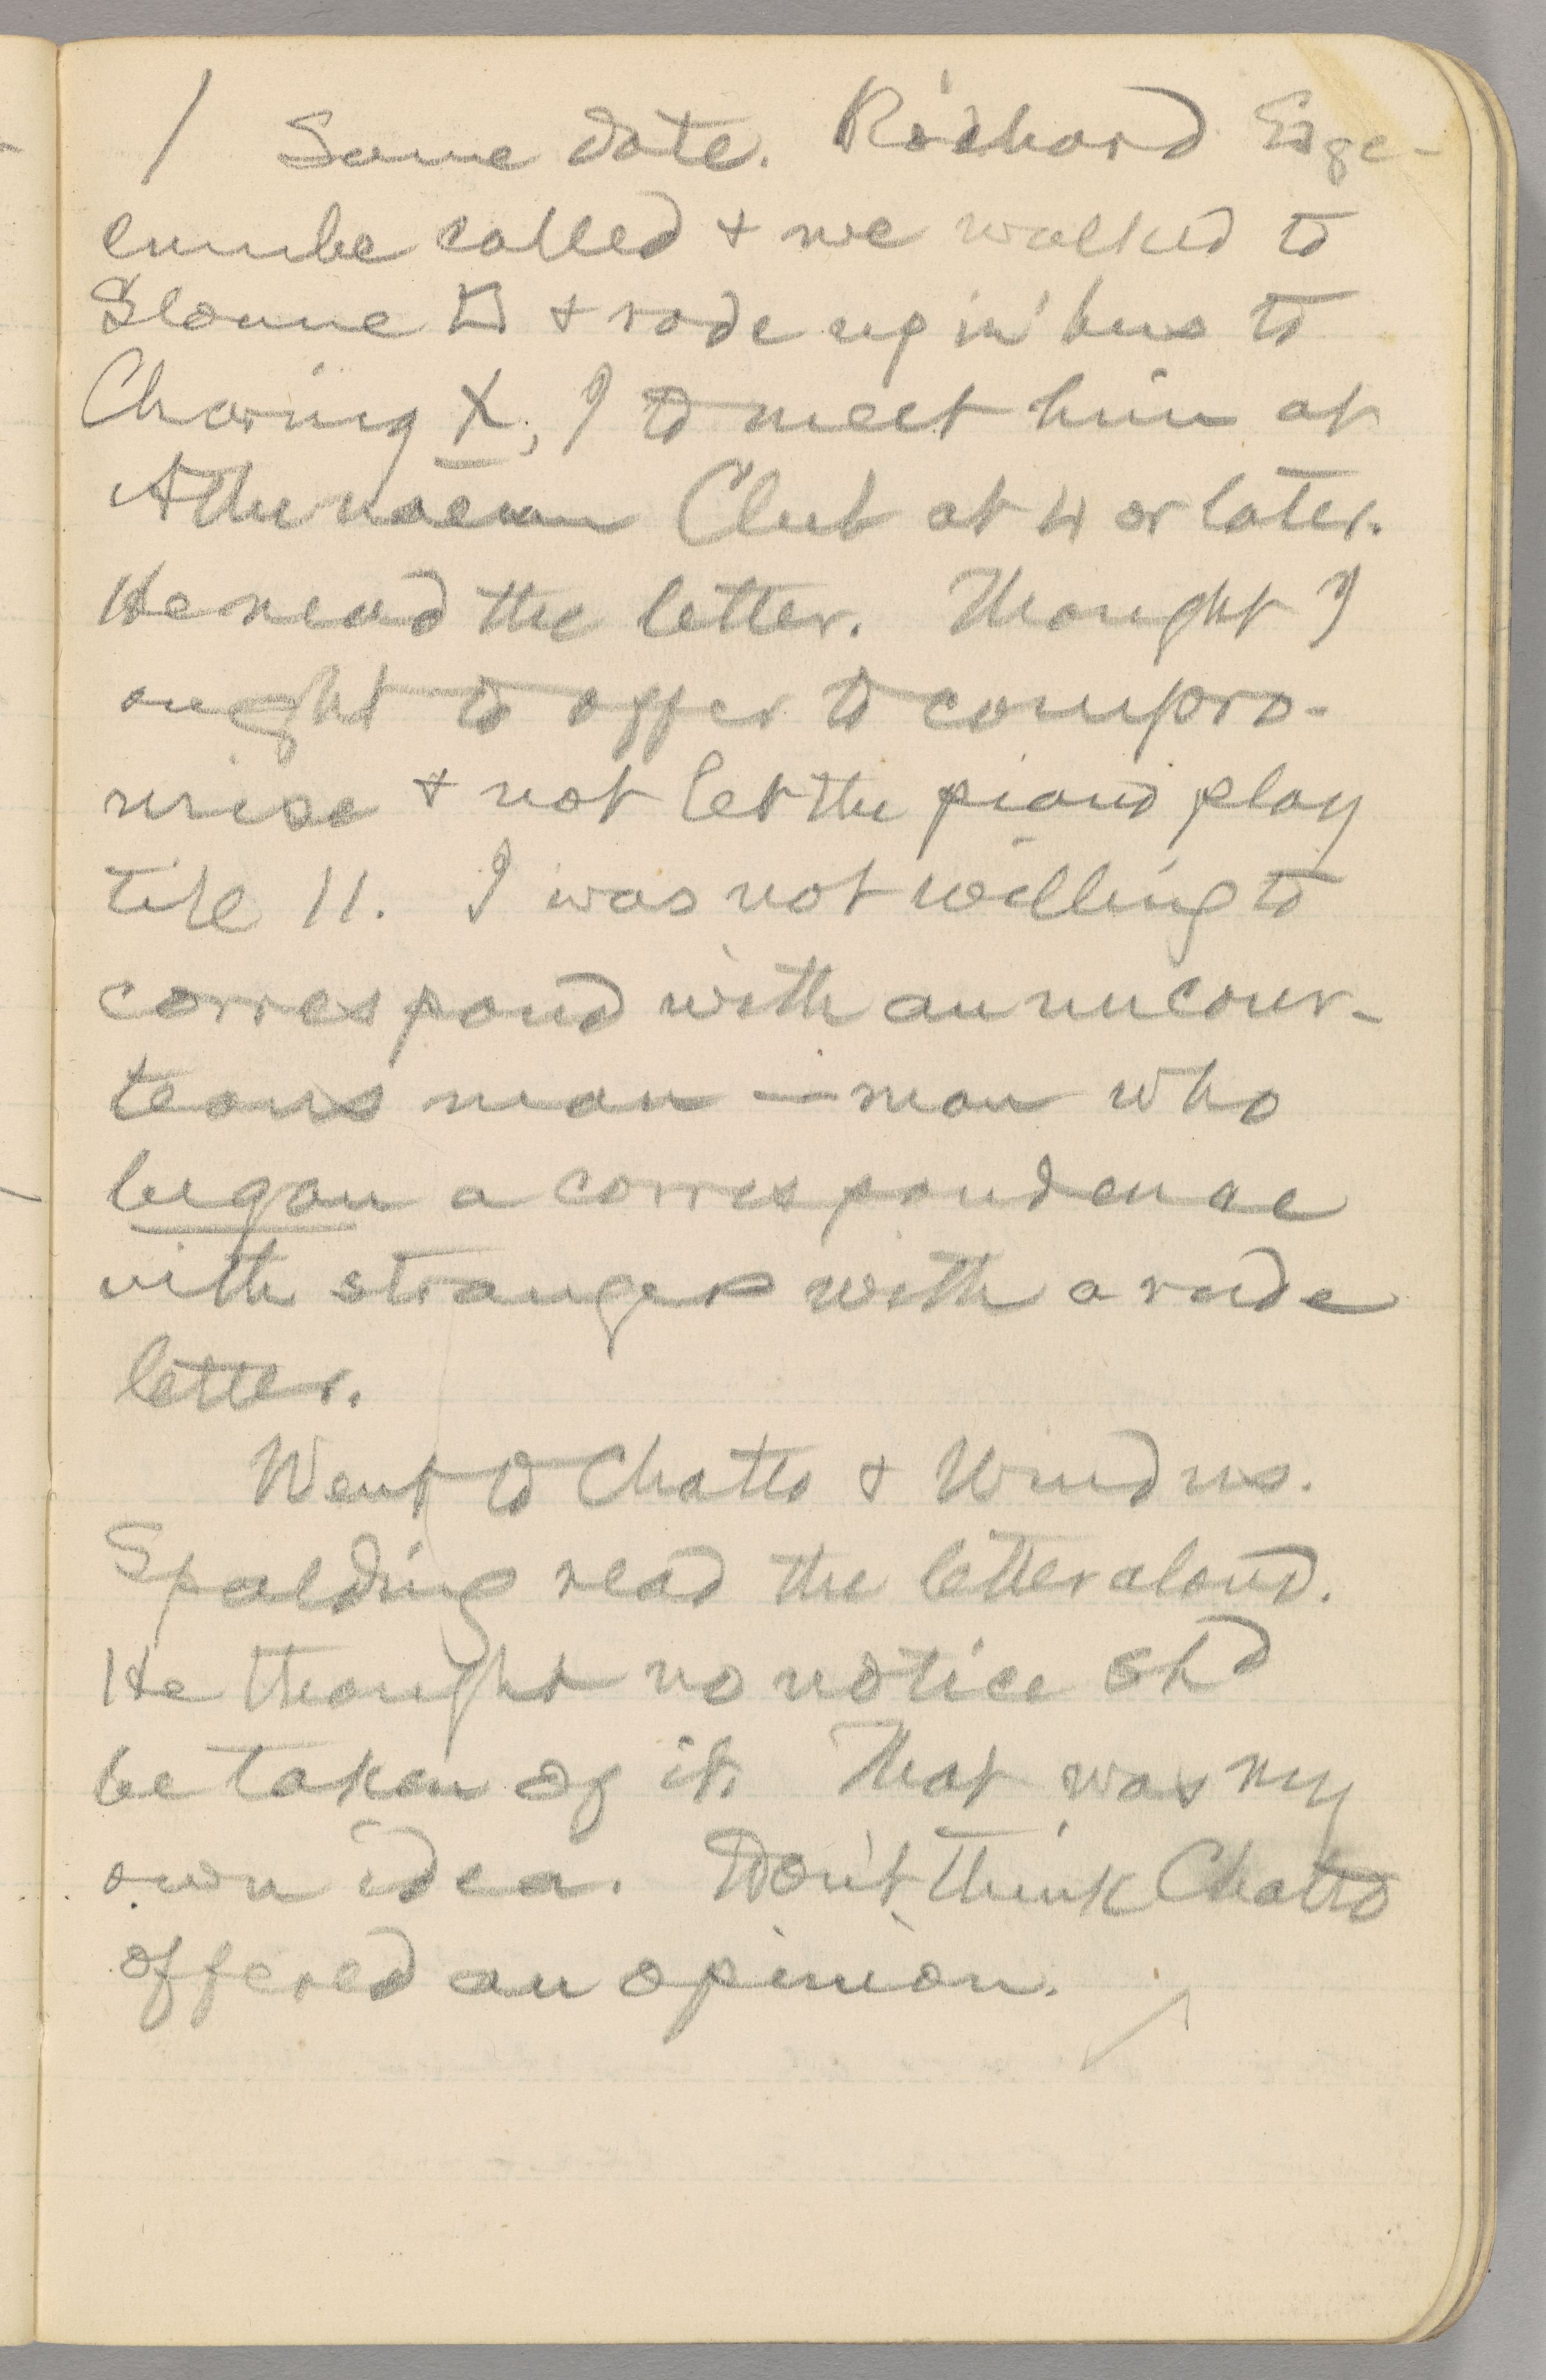 / Same date. Richard Edge-
cumbe called & we walked to
Sloane □ & rode up in 'bus to
Charing X, I to meet him at
Athenaeum Club at 4 or later.
He read the letter. Thought I
ought to offer to compro-
mise & not let the piano play
till 11. I was not willing to
correspond with an uncour-
teous man — man who
began a correspondence
with strangers with a rude
letter.
Went to Chatto & Windus.
Spalding read the letter aloud.
He thought no notice shd
be taken of it. That was my
own idea. Don't think Chatto
offered an opinion.